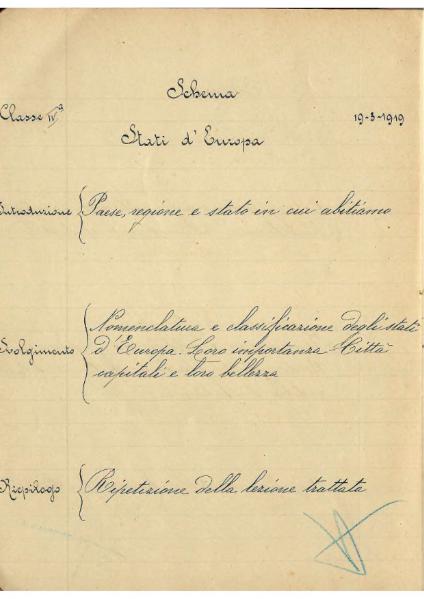 Schema
Classe IVª
19-3-1919
Stati d'Europa
Introduzione
Paese, regione e stato in cui abitiamo
Svolgimento
Nomenclatura e classificazione degli stati
d'Europa. Loro importanza - Città
capitali e loro bellezza
Riepilogo
Ripetizione della lezione trattata